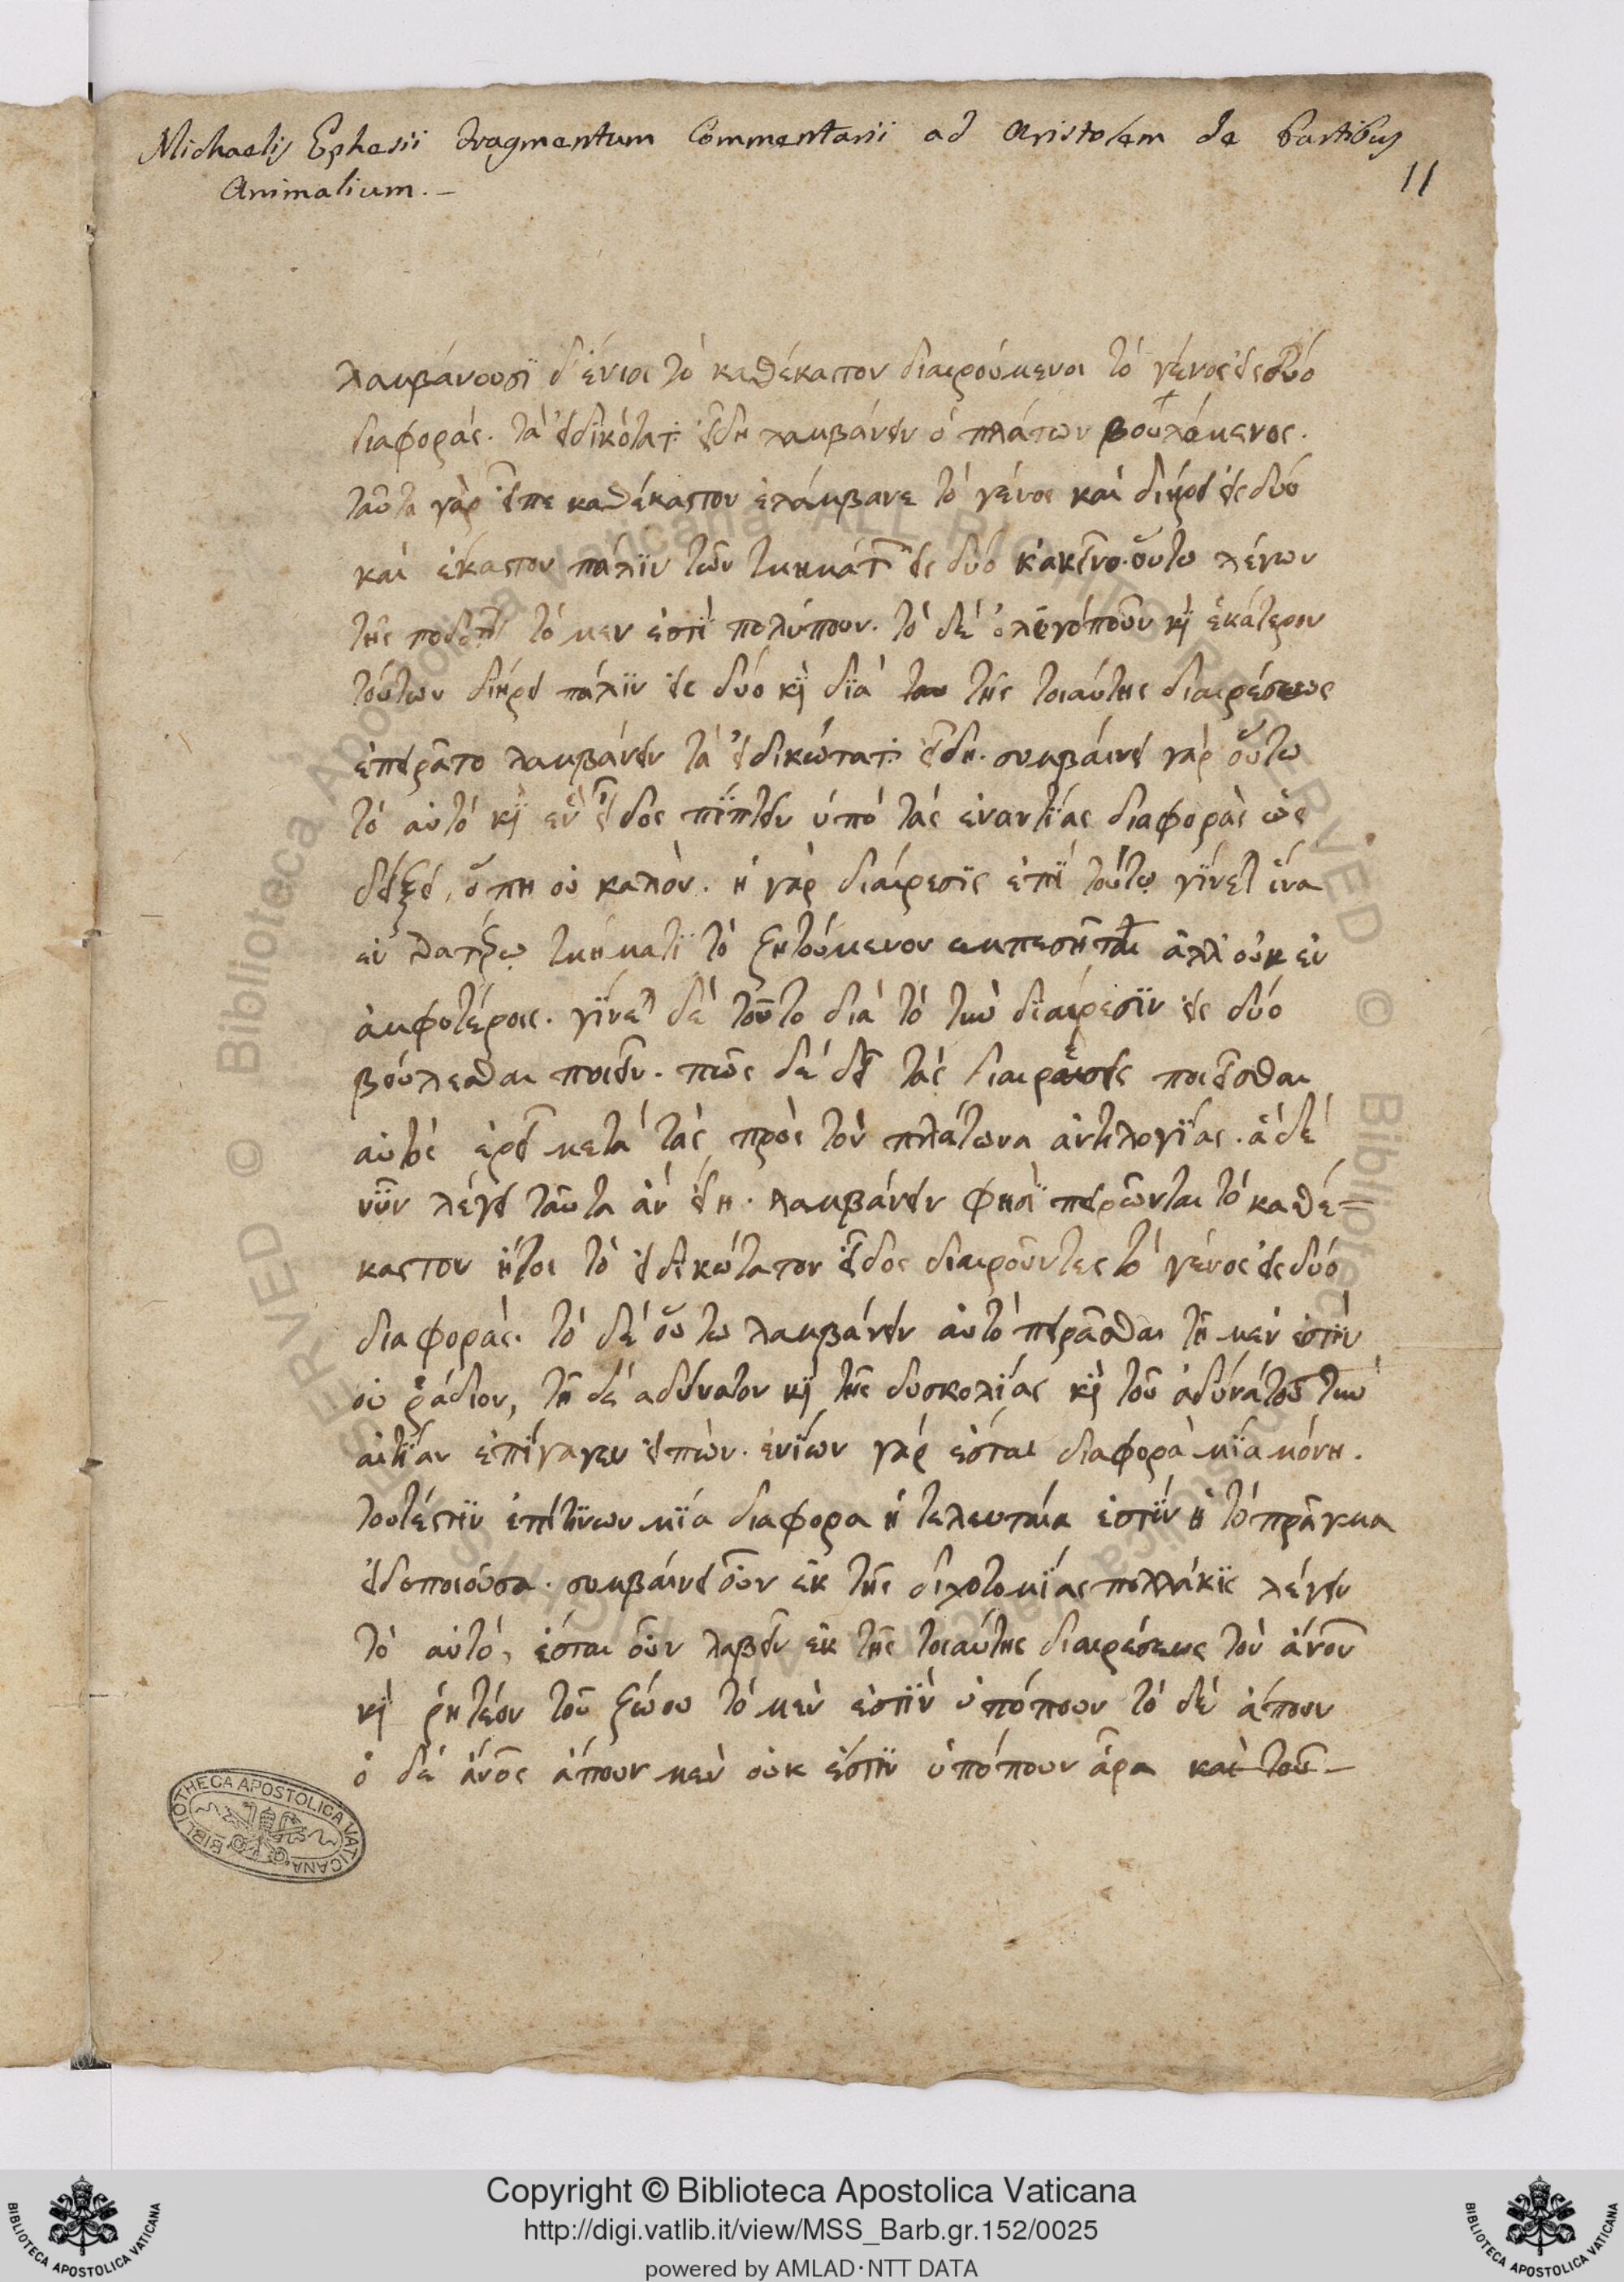 Michaelis Ephesii Fragmentum Commentarii ad Aristotelem de Partibus
Animalium. –
11
λαμβάνουσϊ δ' ένιοι τὸ καθέκαστον διαιρούμενοι τὸ γένος εἰς δύο
διαφοράς. τὰ εἰδικότατα εἴδη λαμβάνειν ὁ πλάτων βουλόμενος.
ταῦτα γὰρ εἶπε καθέκαστον ἐλάμβανε τὸ γένος καὶ διήρει εἰς δύο
καὶ ἕκαστον πάλϊν τῶν τμημάτων εἰς δύο κἀκεῖνο. οὕτω λέγων
τῆς τὸ μεν ἐστϊ πολύπουν. τὸ δὲ ὀλιγόπουν κὶ ἑκάτερον
τούτων διήρει πάλϊν εἰς δύο κὶ δϊὰ τῆς τοιαύτης διαιρέσεως
ἐπειρᾶτο λαμβάνειν τὰ εἰδικώτατα εἴδη. συμβαίνει γὰρ οὕτω
τὸ αὐτὸ κὶ ἓν εἶδος πίπτειν ὑπὸ τὰς ἐναντϊας διαφορὰς ὡς
δείξει, ὅπη οὐ καλὸν. ἡ γὰρ διαίρεσϊς ἐπϊ τούτῳ γίνεται ἵνα
ἐν θατέρῳ τμήματϊ τὸ ζητούμενον εμπεσῆται ἀλλ' οὐκ ἐν
ἀμφοτέροις. γίνεται δὲ τοῦτο διὰ τὸ τὴν διαίρεσϊν εἰς δύο
βούλεσθαι ποιεῖν. πῶς δὲ δεῖ τὰς διαιρέσεις ποιεῖσθαι
αὐτὸς ἐρεῖ μετὰ τὰς πρὸς τὸν πλάτωνα ἀντιλογϊας. ἃ δὲ
νῦν λέγει ταῦτα ἂν εἴη. λαμβάνειν φησὶ πειρῶνται τὸ καθέ=
καστον ἤτοι τὸ εἰδικώτατον εἶδος διαιροῦντες τὸ γένος εἰς δύο
διαφοράς. τὸ δὲ οὕτω λαμβάνειν αὐτὸ πειρᾶσθαι τῆ μεν ἐστϊν
οὐ ῥάδιον, τῆ δὲ αδύνατον κὶ τῆς δυσκολϊας κὶ τοῦ ἀδυνάτου τὴν
αἰτϊαν ἐπϊγαγεν εἰπών. ἐνϊων γὰρ ἔσται διαφορὰ μϊα μόνη.
τουτέστϊν ἐπϊ τϊνων μϊα διαφορα ἡ τελευταία ἐστϊν ἡ τὸ πρᾶγμα
εἰδοποιοῦσα. συμβαίνει οὖν ἐκ τῆς διχοτομϊας πολλάκϊς λέγειν
τὸ αὐτό, ἔσται οὖν λαβεῖν ἐκ τῆς τοιαύτης διαιρέσεως τὸν ἄνον
κὶ ῥητέον τοῦ ζώου τὸ μὲν ἐστϊν ὑπόπουν τὸ δὲ ἄπουν
ὁ δὲ ἄνος ἄπουν μεν οὐκ ἔστϊν ὑπόπουν ἄρα καὶ τοῦ –
BIBLIOTHECA APOSTOLICA VATICANA
Copyright © Biblioteca Apostolica Vaticana
http://digi.vatlib.it/view/MSS_Barb.gr.152/0025
powered by AMLAD·NTT DATA
BIBLIOTECA APOSTOLICA VATICANA
BIBLIOTECA APOSTOLICA VATICANA